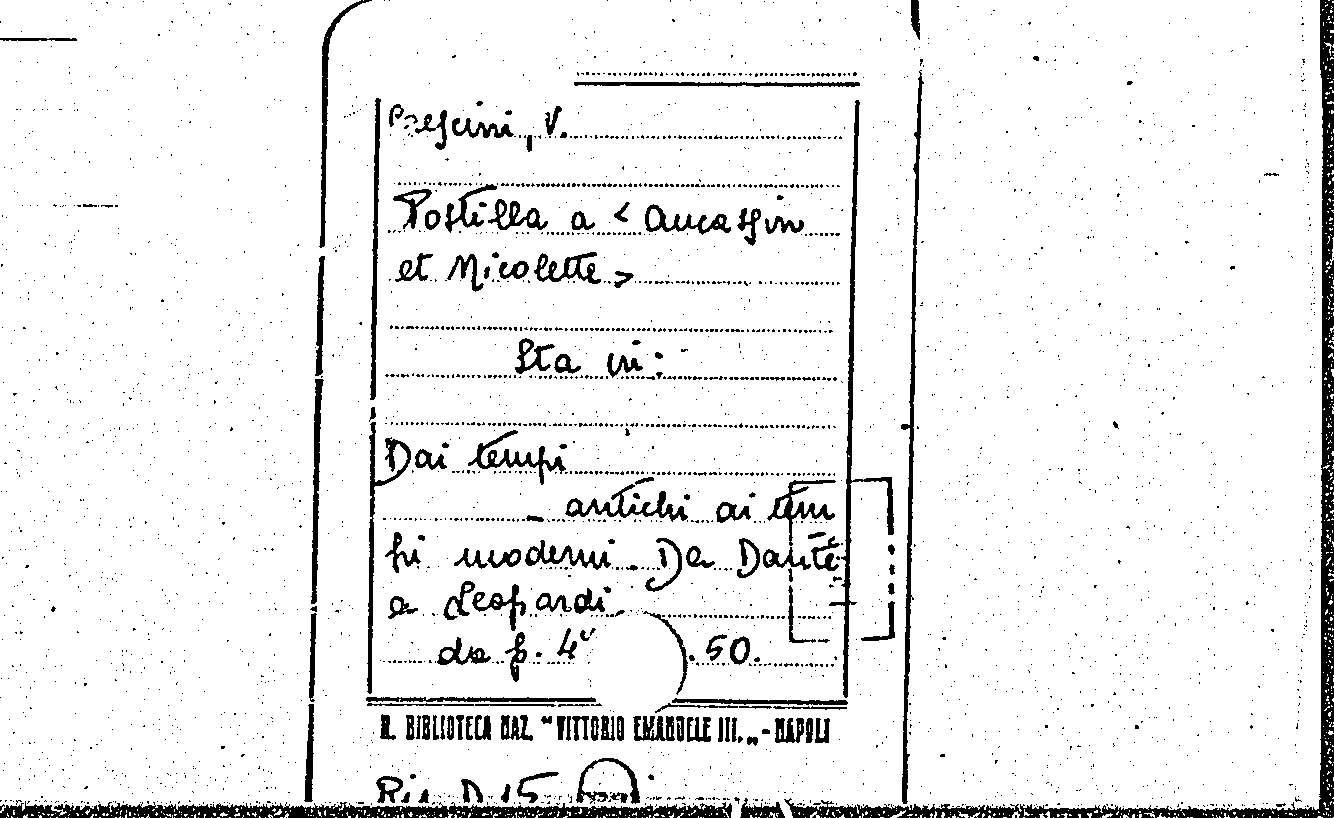 Crescini, V.
Postilla a < Aucassin
et Nicolette >
Sta in:
Dai tempi
antichi ai tem
pi moderni. Da Dante
a Leopardi.
da p. 4 . 50.
R. BIBLIOTECA NAZ. "VITTORIO EMANUELE III. „ - NAPOLI